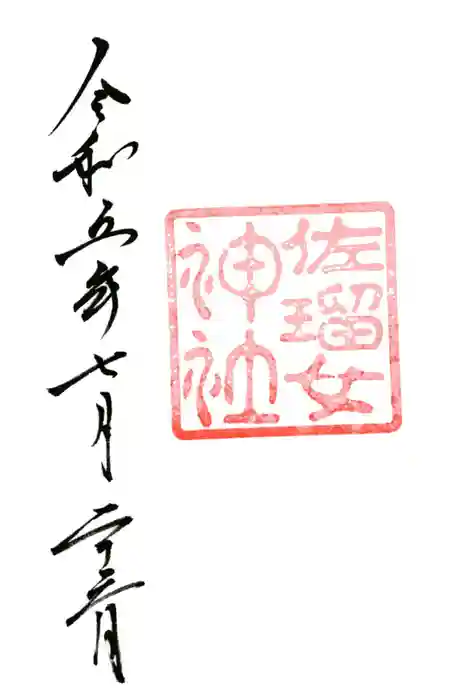 佐瑠女
神社
令和五年七月二十三日